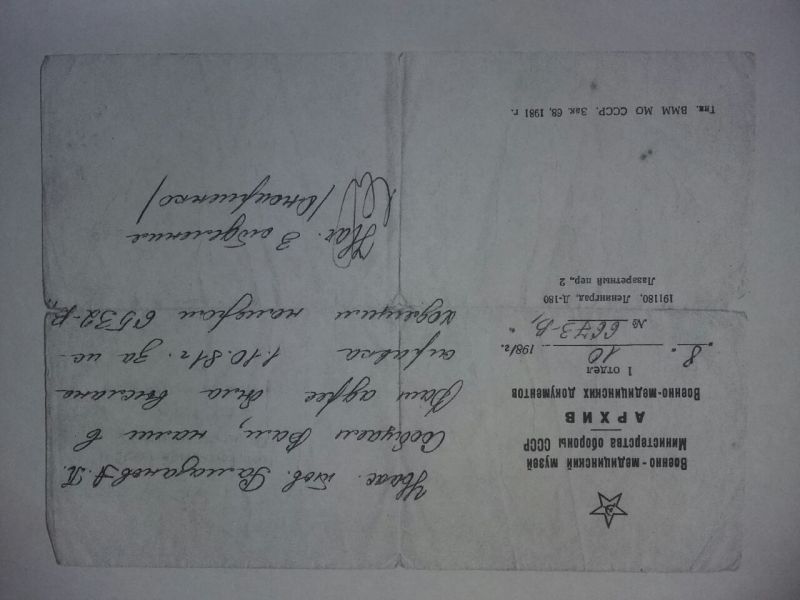 Военно-медицинский музей
Министерства обороны СССР
АРХИВ
Военно-медицинских документов
1 отдел
„8“ 10 1981г.
№ 6673-В,
191180, Ленинград, Д-180
Лазаретный пер., 2
Уваж. тов. Рамазанов А. П.
Сообщаем Вам, нами в
Ваш адрес была выслана
справка 1.10.81г. за ис-
ходящим номером 6532-В
Нач. 3 отделения
Тип. ВММ МО СССР. Зак. 68, 1981 г.